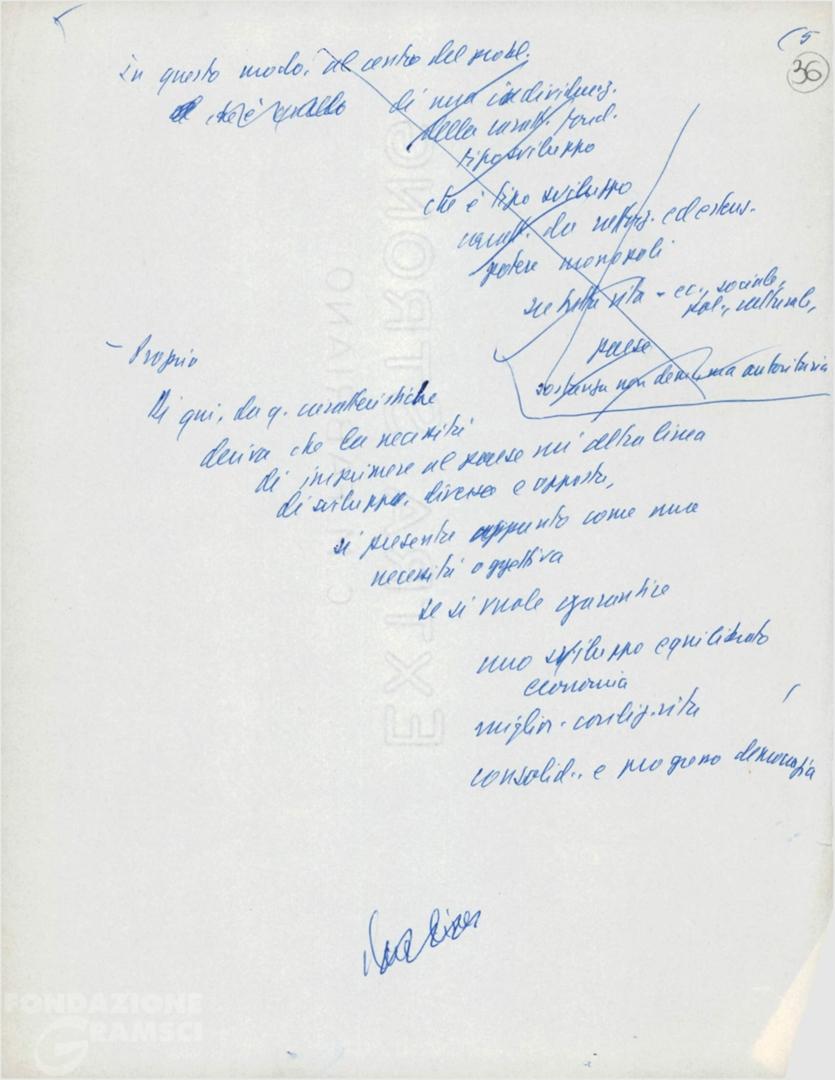 5
36
In questo modo, al centro del probl.
di una individuaz.
della caratt. fond.
tipo sviluppo
che è tipo sviluppo
caratt. da rafforz. ed estens.
potere monopoli
su tutta vita - ec., sociale,
pol., culturale,
paese
sostanza non autoritaria
- Proprio
Di qui, da q. caratteristiche
deriva che la necessità
di imprimere al paese un'altra linea
di sviluppo, diversa e opposta,
si presenta appunto come una
necessità oggettiva
se si vuole garantire
uno sviluppo equilibrato
economia
miglior. vita
consolid.. e progresso democrazia
EXTRA STRONG
FONDAZIONE
GRAMSCI